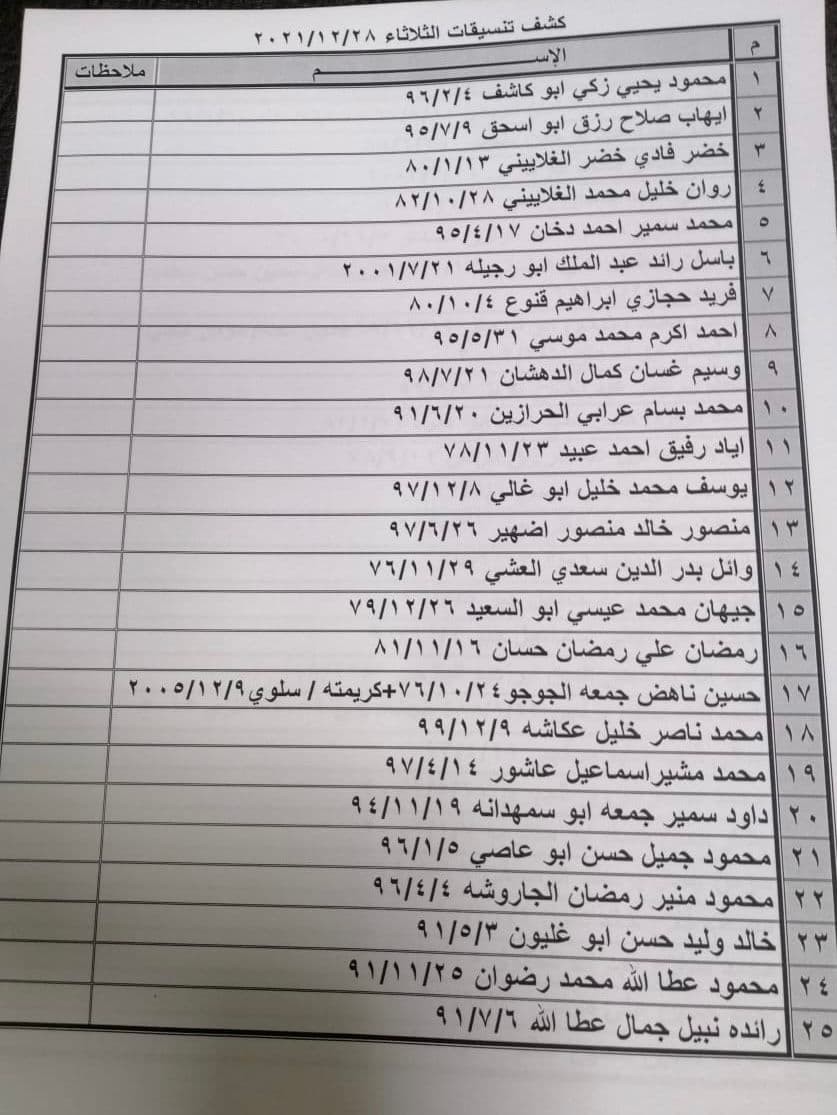 كشف تنسيقات الثلاثاء ٢٠٢١/١٢/٢٨
م الإســـــــــم ملاحظات
١ محمود يحيي زكي ابو كاشف ٩٦/٢/٤
٢ ايهاب صلاح رزق ابو اسحق ٩٥/٧/٩
٣ خضر فادي خضر الغلاييني ٨٠/١/١٣
٤ روان خليل محمد الغلاييني ٨٢/١٠/٢٨
٥ محمد سمير احمد دخان ٩٥/٤/١٧
٦ باسل رائد عبد الملك ابو رجيله ٢٠٠١/٧/٢١
٧ فريد حجازي ابراهيم قنوع ٨٠/١٠/٤
٨ احمد اكرم محمد موسي ٩٥/٥/٣١
٩ وسيم غسان كمال الدهشان ٩٨/٧/٢١
١٠ محمد بسام عرابي الحرازين ٩١/٦/٢٠
١١ اياد رفيق احمد عبيد ٧٨/١١/٢٣
١٢ يوسف محمد خليل ابو غالي ٩٧/١٢/٨
١٣ منصور خالد منصور اضهير ٩٧/٦/٢٦
١٤ وائل بدر الدين سعدي العشي ٧٦/١١/٢٩
١٥ جيهان محمد عيسي ابو السعيد ٧٩/١٢/٢٦
١٦ رمضان علي رمضان حسان ٨١/١١/١٦
١٧ حسين ناهض جمعه الجوجو ٧٦/١٠/٢٤+كريمته / سلوي ٢٠٠٥/١٢/٩
١٨ محمد ناصر خليل عكاشه ٩٩/١٢/٩
١٩ محمد مشيراسماعيل عاشور ٩٧/٤/١٤
٢٠ داود سمير جمعه ابو سمهدانه ٩٤/١١/١٩
٢١ محمود جميل حسن ابو عاصي ٩٦/١/٥
٢٢ محمود منير رمضان الجاروشه ٩٦/٤/٤
٢٣ خالد وليد حسن ابو غليون ٩١/٥/٣
٢٤ محمود عطا الله محمد رضوان ٩١/١١/٢٥
٢٥ رائده نبيل جمال عطا الله ٩١/٧/٦